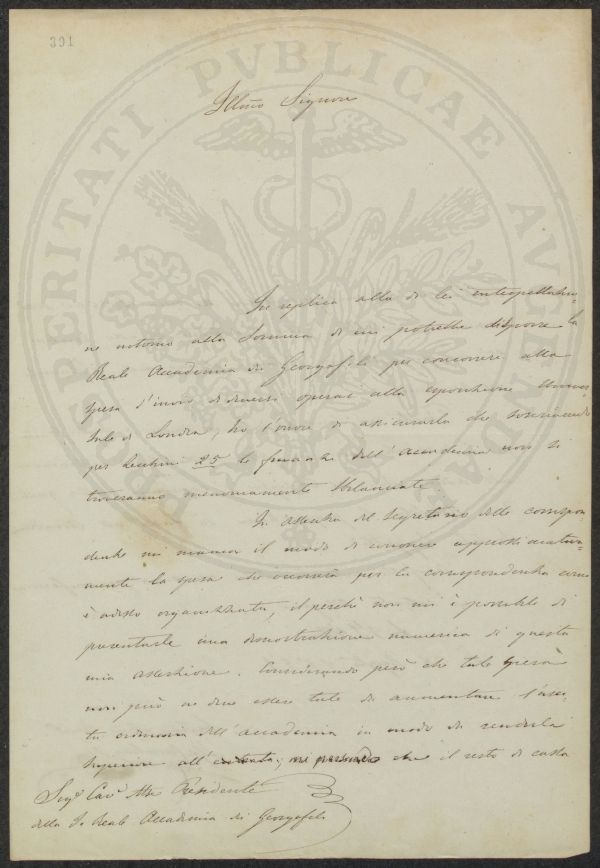 391
Illmo Signore
In replica alla di lei interpellazio-
ne intorno alla Somma di cui potrebbe disporre la
Reale Accademia dei Georgofili per concorrere alla
spesa d'invio di diversi operai alla esposizione Univer-
sale di Londra, ho l'onore di assicurarla che
per Zecchini 25 le finanze dell'Accademia non si
troveranno menomamente sbilanciate.
In assenza del Segretario delle corrispon-
denze mi manca il modo di conoscere approssimativa-
mente la spesa che occorrerà per la corrispondenza come
è adesso organizzata, il perchè non mi è possibile di
presentarle una dimostrazione numerica di questa
mia asserzione. Considerando però che tale spesa
non può ne deve essere tale di aumentare l'usci-
ta ordinaria dell'Accademia in modo di renderla
superiore all'entrata, mi persuado che il resto di cassa
Sigr Cavr Presidente
della I. Reale Accademia dei Georgofili
PROSPERITATI PVBLICAE AVGENDAE